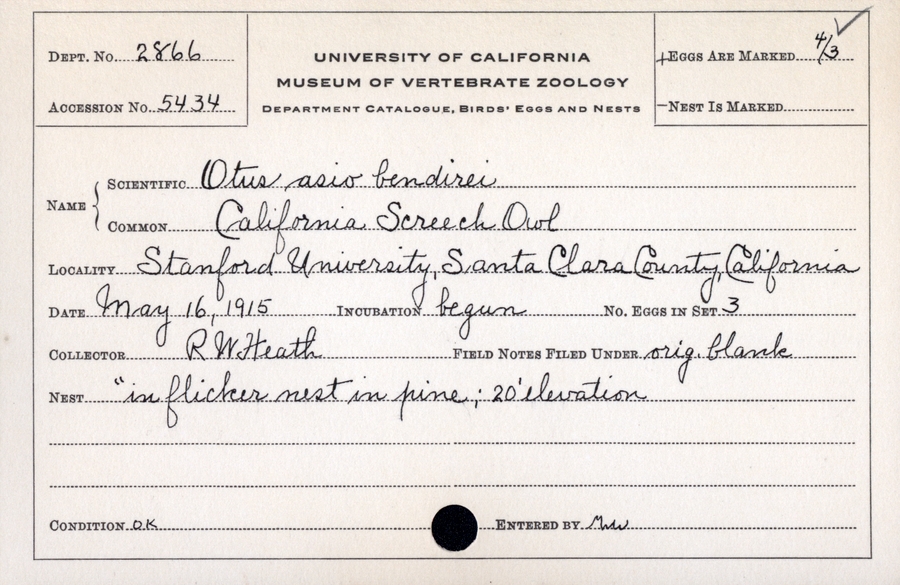 DEPT. No. 2866
ACCESSION No. 5434
UNIVERSITY OF CALIFORNIA
MUSEUM OF VERTEBRATE ZOOLOGY
DEPARTMENT CATALOGUE, BIRDS' EGGS AND NESTS
+EGGS ARE MARKED 4/3
—NEST IS MARKED
NAME
SCIENTIFIC Otus asio bendirei
COMMON California Screech Owl
LOCALITY Stanford University, Santa Clara County, California
DATE May 16, 1915 INCUBATION begun No. EGGS IN SET 3
COLLECTOR R W Heath FIELD NOTES FILED UNDER orig. blank
NEST "in flicker nest in pine; 20' elevation
CONDITION OK ENTERED BY